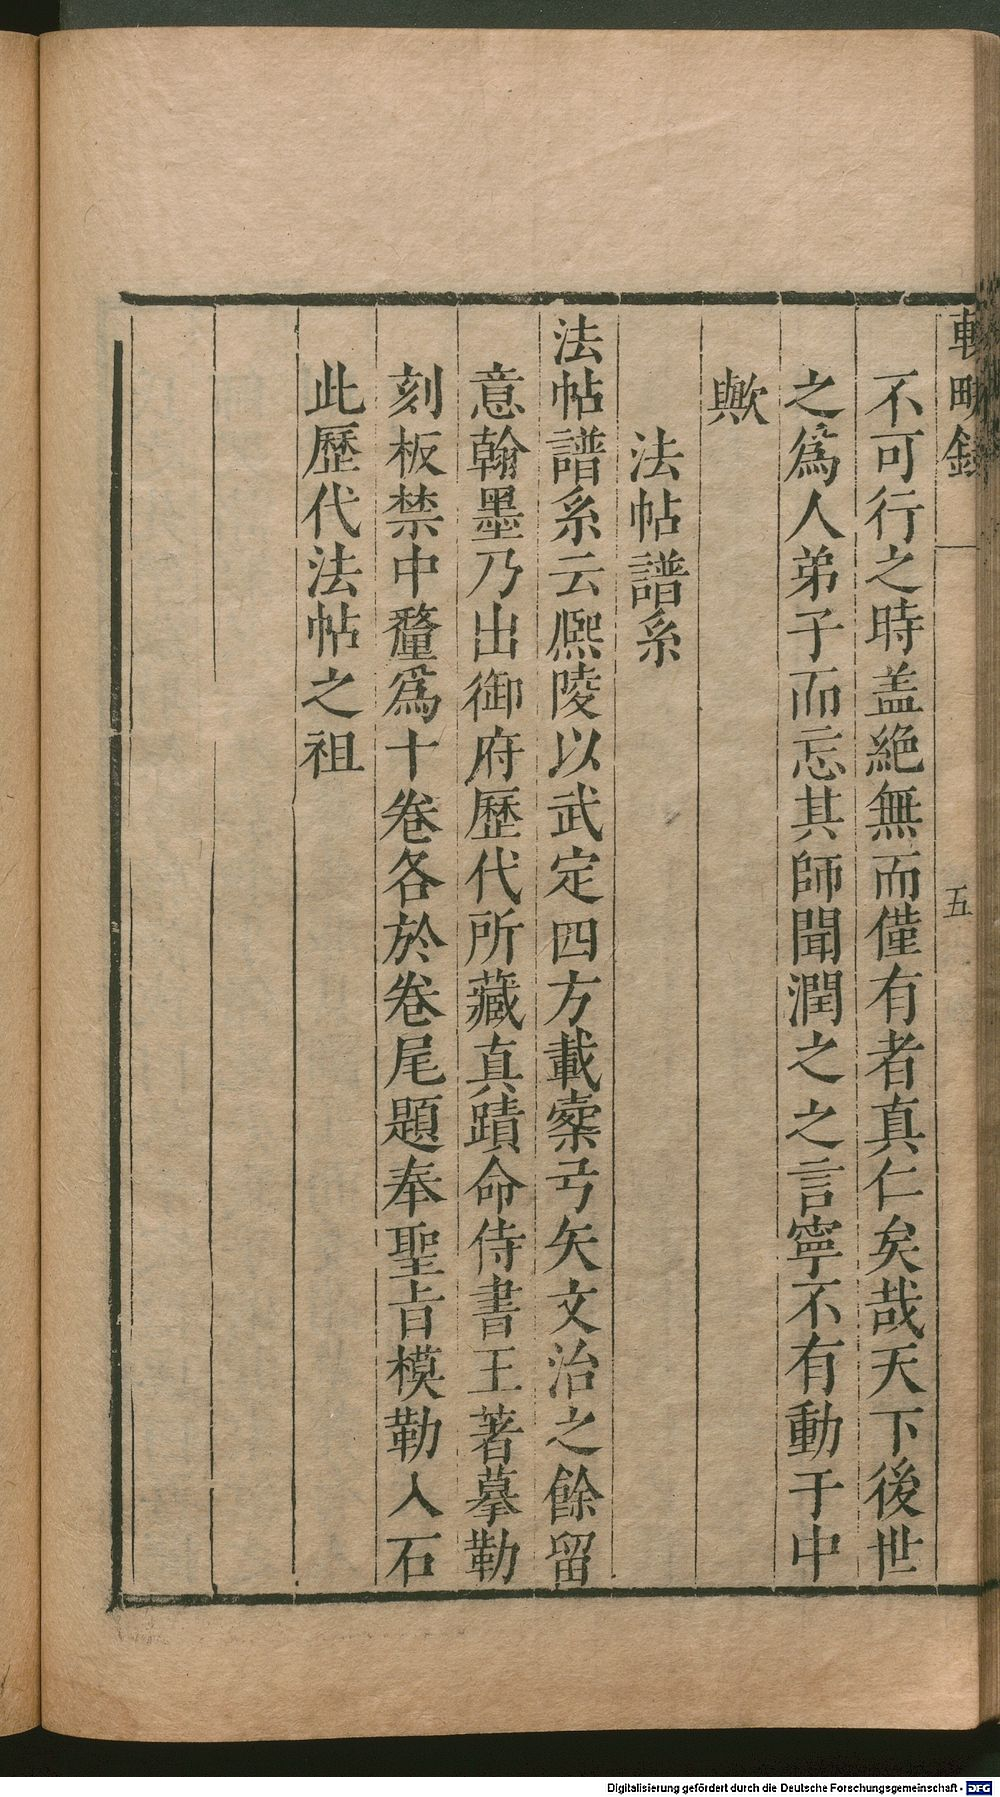 輟畊錄 五
不可行之時盖絕無而僅有者真仁矣哉天下後世
之爲人弟子而忘其師聞潤之之言寧不有動于中
歟
法帖譜系
法帖譜系云熈陵以武定四方載櫜弓矢文治之餘留
意翰墨乃出御府歷代所藏真蹟命侍書王著摹勒
刻板禁中釐爲十卷各於卷尾題奉聖旨模勒入石
此歷代法帖之祖
Digitalisierung gefördert durch die Deutsche Forschungsgemeinschaft - DFG